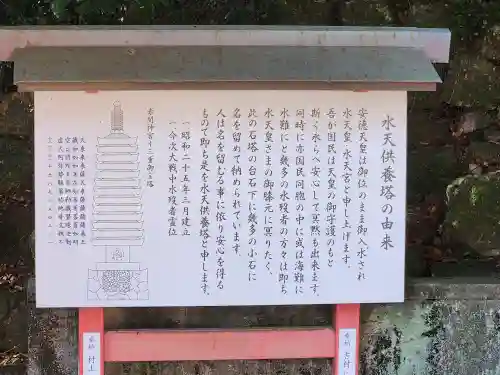 水天供養塔の由来
安徳天皇は御位のまま御入水され
水天皇・水天宮と申し上げます。
吾が国民は天皇の御守護のもと
斯く永らへ安心して冥黙も出来ます。
何時に亦国民同胞の中に或は海難に
水難にと幾多の水歿者の方々は即ち
水天皇さまの御膝元に冥りたく、
此の石塔の台石下に幾多の小石に
名を留めて納められています。
人は名を留むる事に依り安心を得る
ものて即ち是を水天供養塔と申します。
一昭和二十五年三月建立
一今次大戦中水歿者霊位
赤間神宮十三重御立塔
奉納
村上
奉納